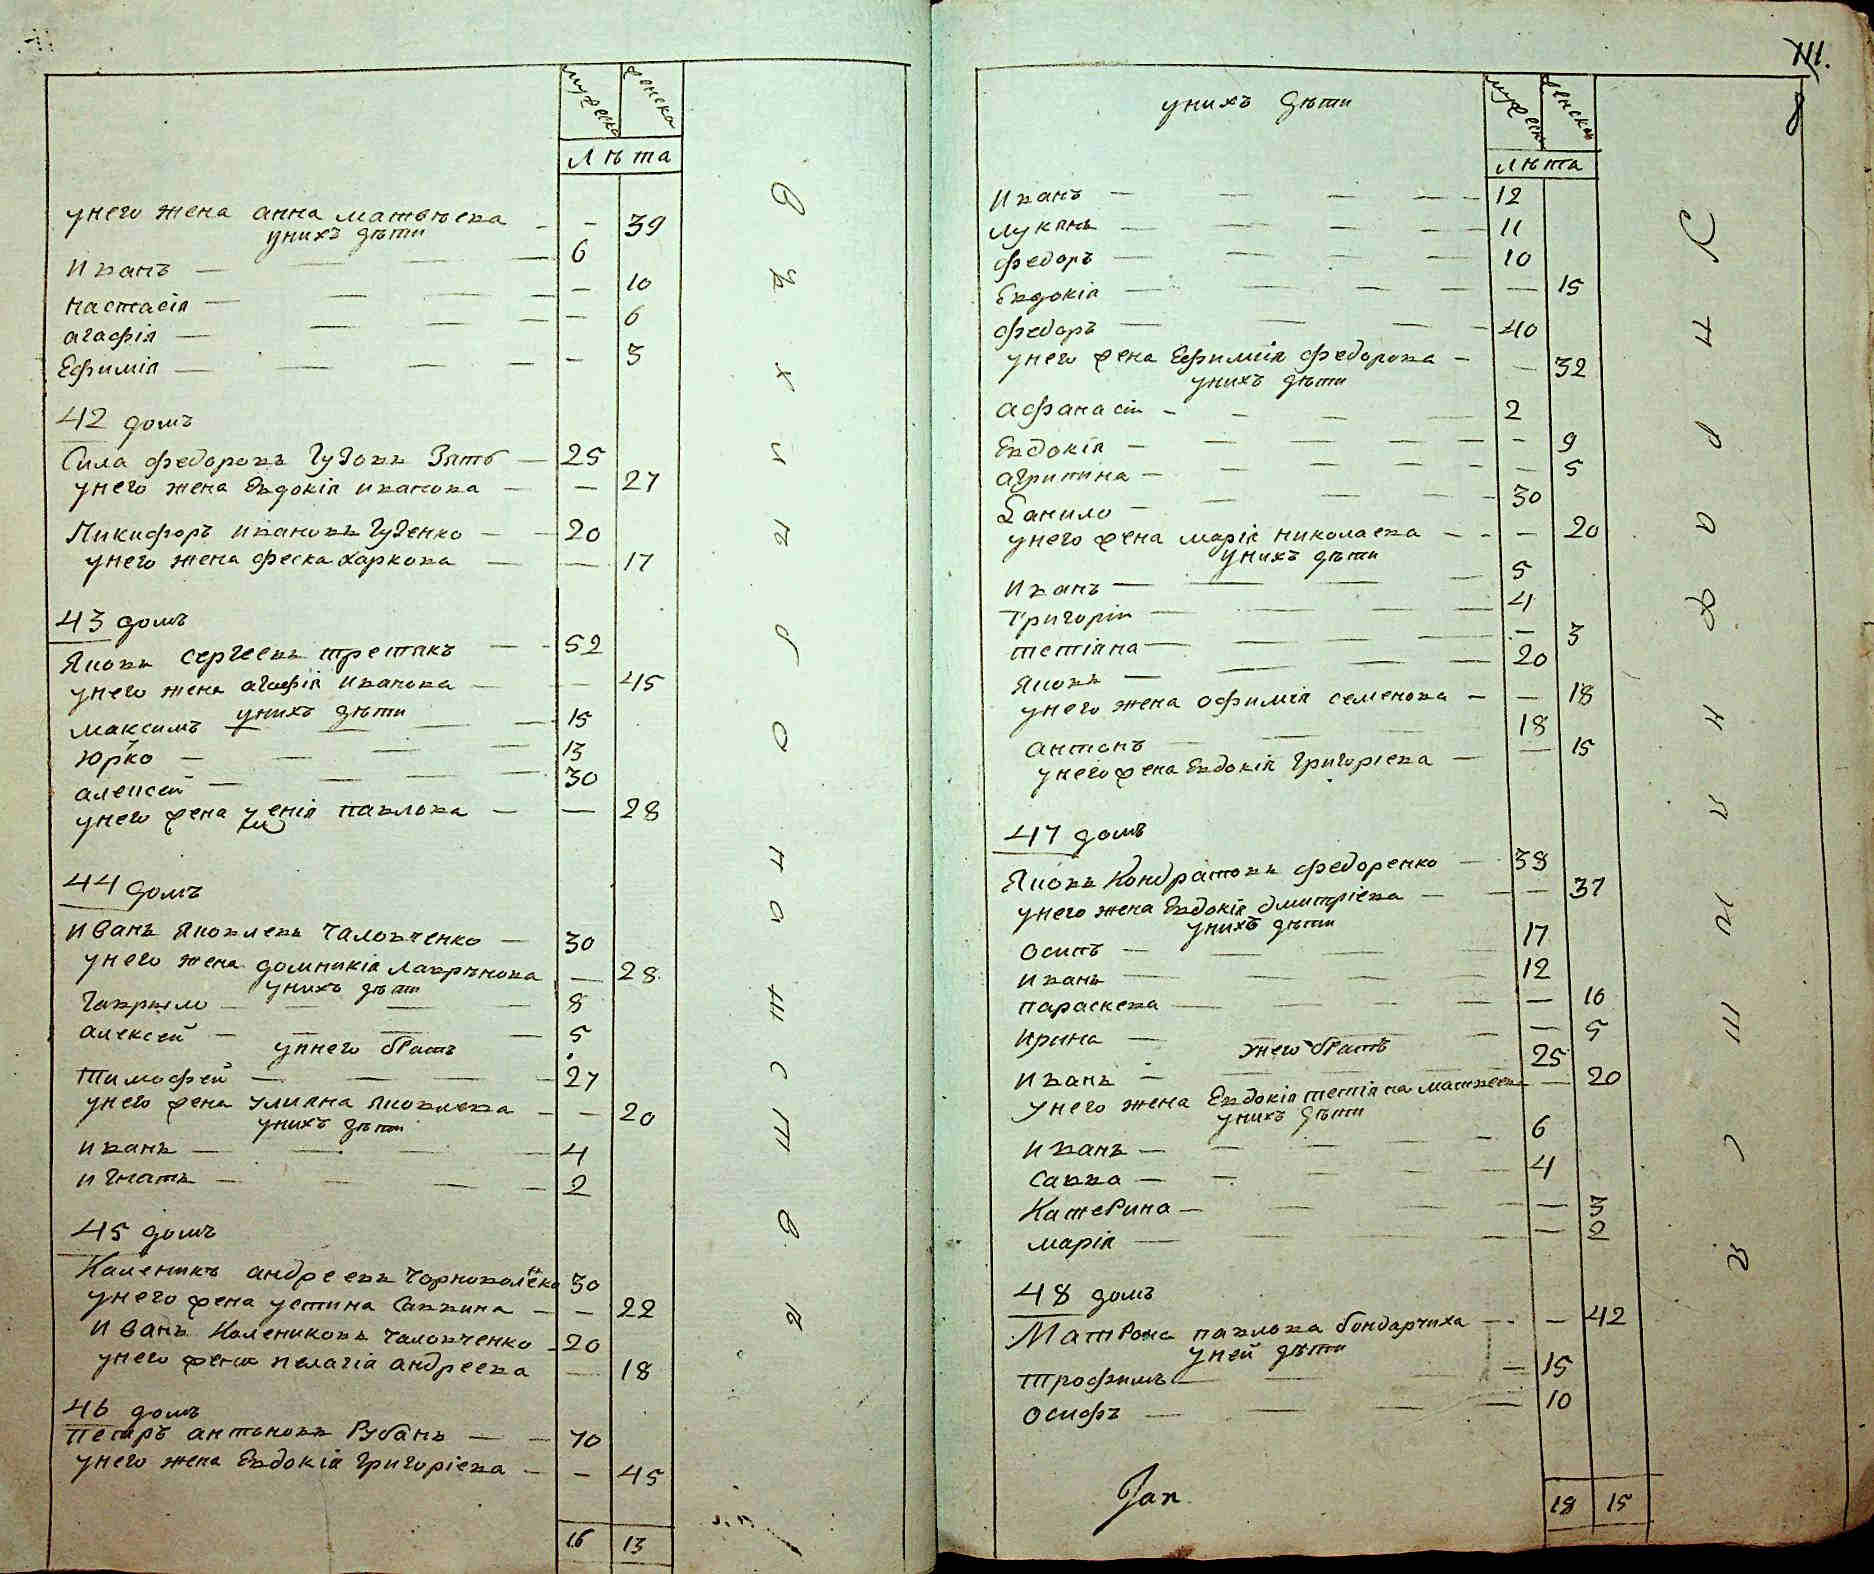 мужеска женска
Лѣта
унего жена анна матвѣева — 39
унихъ дѣти
Иванъ — 6
настасія — 10
агафія — 6
Ефимія — 3
42 домъ
Сила федоровъ Гузовъ Зять — 25
унего жена Евдокія иванова — 27
Никифоръ ивановъ Гузенко — 20
унего жена феска харкова — 17
43 домъ
Яковъ сергеевъ третякъ — 52
унего жена агафія иванова — 45
унихъ дѣти
максимъ — 15
Юрко — 13
алексей — 30
унего жена павлова — 28
44 домъ
Иванъ Яковлевъ чаловченко — 30
унего жена домникія лаврѣнова — 28
унихъ дѣти
Гаврыло — 8
алексей — 5
унего братъ
Тимофей — 27
унего жена Улияна Яковлева — 20
унихъ дѣти
иванъ — 4
игнатъ — 2
45 домъ
Каленикъ андреевъ — 30
унего жена устина Саввина — 22
Иванъ Калениковъ чаловченко — 20
унего жена пелагія андреева — 18
46 домъ
Петръ антоновъ Рубанъ — 70
унего жена Евдокія григоріева — 45
16 13
111.
8
унихъ дѣти
мужеска женска
лѣта
Иванъ — 12
лукянъ — 11
федоръ — 10
Евдокія — 15
федоръ — 40
унего жена Ефимия федорова — 32
унихъ дѣти
афанасіи — 2
Евдокія — 9
агрипина — 5
Данило — 30
унего жена марія николаева — 20
унихъ дѣти
Иванъ — 5
Григоріи — 4
тетіяна — 3
Яковъ — 20
унего жена офимія семенова — 18
антонъ — 18
унего жена Евдокія Григоріева — 15
47 домъ
Яковъ Кондратовъ федоренко — 38
унего жена Евдокія дмитріева — 37
унихъ дѣти
Осипъ — 17
иванъ — 12
параскева — 16
ирина — 5
унего братъ
иванъ — 25
унего жена Евдокія тетіяна матвеева — 20
унихъ дѣти
Иванъ — 6
Савва — 4
Катерина — 3
марія — 2
48 домъ
Матрона павлова бондарчиха — 42
уней дѣти
трофимъ — 15
Осифъ — 10
18 15